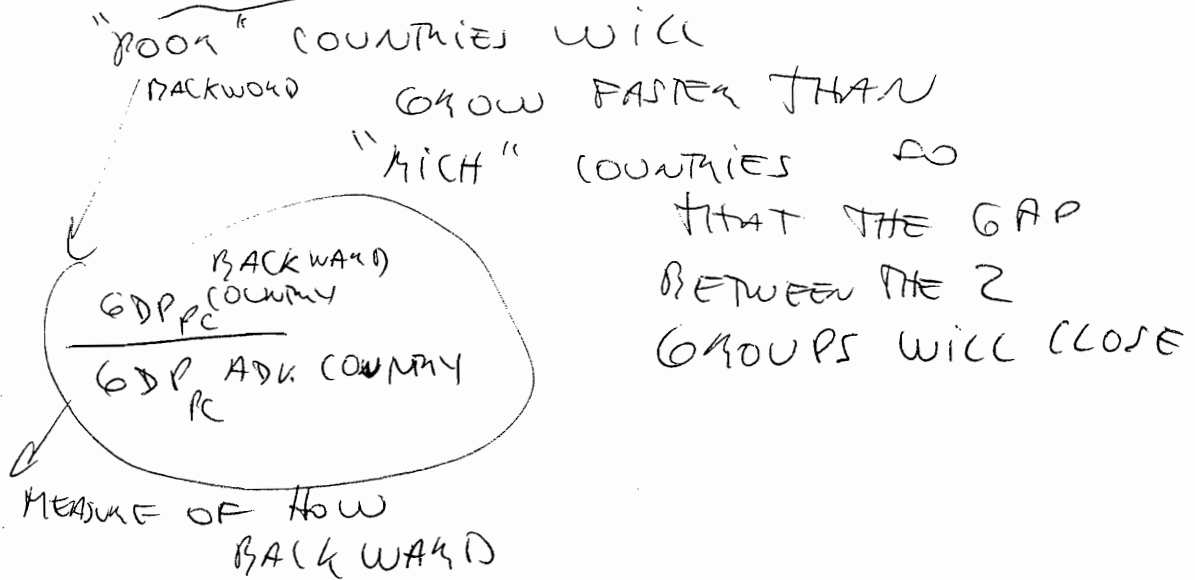 "POOR" COUNTRIES WILL
BACKWORD
GROW FASTER THAN
"RICH" COUNTRIES SO
THAT THE GAP
BETWEEN THE 2
GROUPS WILL CLOSE
BACKWARD
GDP PC COUNTRY
GDP PC ADV. COUNTRY
MEASURE OF HOW
BACKWARD